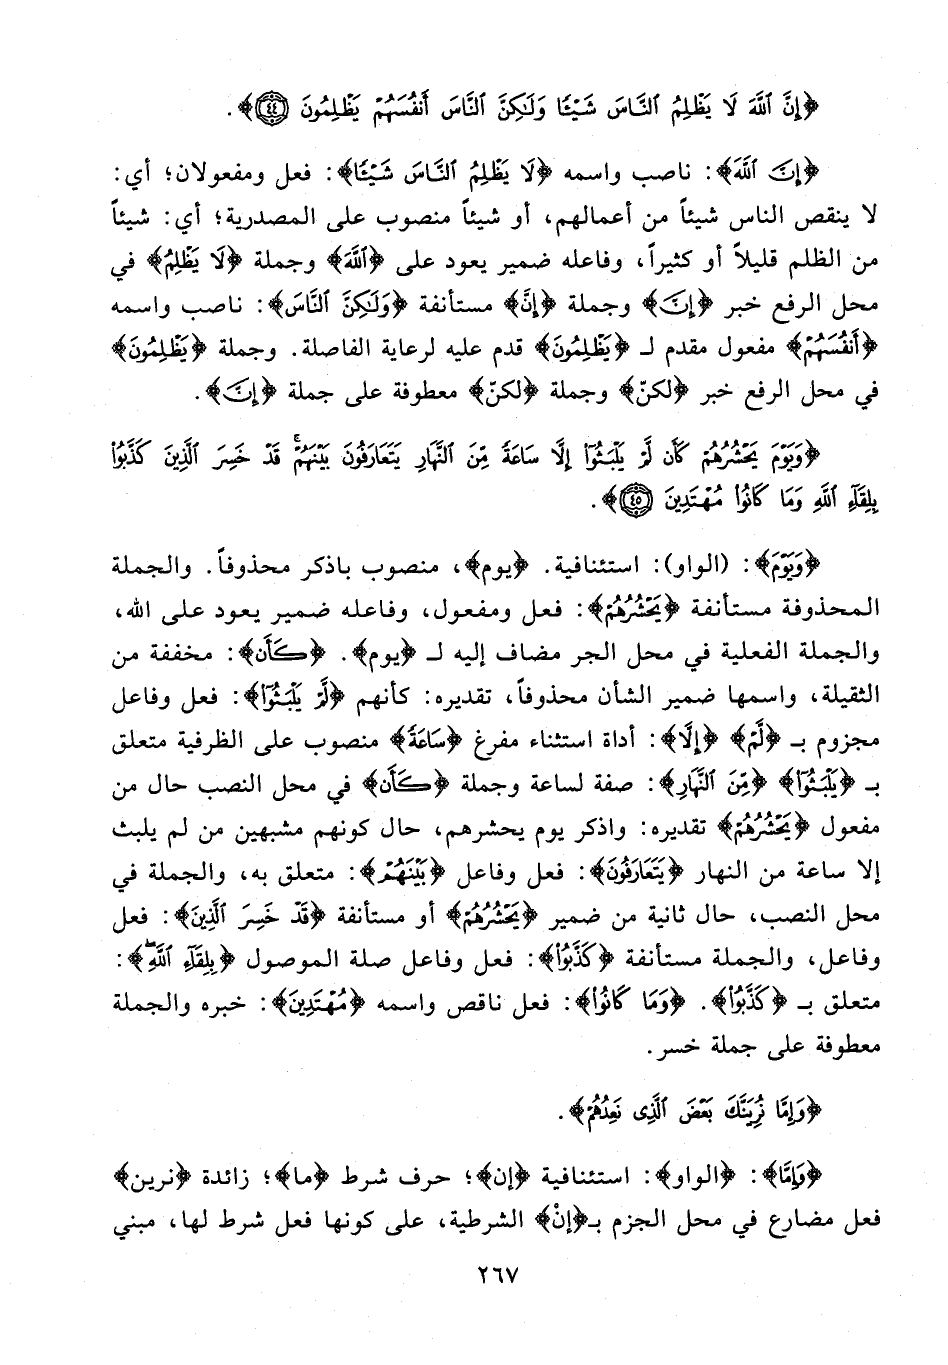 ﴿إِنَّ ٱللَّهَ لَا يَظْلِمُ ٱلنَّاسَ شَيْـًٔا وَلَـٰكِنَّ ٱلنَّاسَ أَنفُسَهُمْ يَظْلِمُونَ ٤٤﴾.
﴿إِنَّ ٱللَّهَ﴾: ناصب واسمه ﴿لَا يَظْلِمُ ٱلنَّاسَ شَيْـًٔا﴾: فعل ومفعولان؛ أي:
لا ينقص الناس شيئاً من أعمالهم، أو شيئاً منصوب على المصدرية؛ أي: شيئاً
من الظلم قليلاً أو كثيراً، وفاعله ضمير يعود على ﴿ٱللَّهَ﴾ وجملة ﴿لَا يَظْلِمُ﴾ في
محل الرفع خبر ﴿إِنَّ﴾ وجملة ﴿إِنَّ﴾ مستأنفة ﴿وَلَـٰكِنَّ ٱلنَّاسَ﴾: ناصب واسمه
﴿أَنفُسَهُمْ﴾ مفعول مقدم لـ ﴿يَظْلِمُونَ﴾ قدم عليه لرعاية الفاصلة. وجملة ﴿يَظْلِمُونَ﴾
في محل الرفع خبر ﴿لكنّ﴾ وجملة ﴿لكنّ﴾ معطوفة على جملة ﴿إِنَّ﴾.
﴿وَيَوْمَ يَحْشُرُهُمْ كَأَن لَّمْ يَلْبَثُوٓا۟ إِلَّا سَاعَةً مِّنَ ٱلنَّهَارِ يَتَعَارَفُونَ بَيْنَهُمْ ۚ قَدْ خَسِرَ ٱلَّذِينَ كَذَّبُوا۟
بِلِقَآءِ ٱللَّهِ وَمَا كَانُوا۟ مُهْتَدِينَ ٤٥﴾.
﴿وَيَوْمَ﴾: (الواو): استئنافية. ﴿يوم﴾، منصوب باذكر محذوفاً. والجملة
المحذوفة مستأنفة ﴿يَحْشُرُهُمْ﴾: فعل ومفعول، وفاعله ضمير يعود على الله،
والجملة الفعلية في محل الجر مضاف إليه لـ ﴿يوم﴾. ﴿كَأَن﴾: مخففة من
الثقيلة، واسمها ضمير الشأن محذوفاً، تقديره: كأنهم ﴿لَّمْ يَلْبَثُوٓا۟﴾: فعل وفاعل
مجزوم بـ ﴿لَّمْ﴾ ﴿إِلَّا﴾: أداة استثناء مفرغ ﴿سَاعَةً﴾ منصوب على الظرفية متعلق
بـ ﴿يَلْبَثُوٓا۟﴾ ﴿مِّنَ ٱلنَّهَارِ﴾: صفة لساعة وجملة ﴿كَأَن﴾ في محل النصب حال من
مفعول ﴿يَحْشُرُهُمْ﴾ تقديره: واذكر يوم يحشرهم، حال كونهم مشبهين من لم يلبث
إلا ساعة من النهار ﴿يَتَعَارَفُونَ﴾: فعل وفاعل ﴿بَيْنَهُمْ﴾: متعلق به، والجملة في
محل النصب، حال ثانية من ضمير ﴿يَحْشُرُهُمْ﴾ أو مستأنفة ﴿قَدْ خَسِرَ ٱلَّذِينَ﴾: فعل
وفاعل، والجملة مستأنفة ﴿كَذَّبُوا۟﴾: فعل وفاعل صلة الموصول ﴿بِلِقَآءِ ٱللَّهِ﴾:
متعلق بـ ﴿كَذَّبُوا۟﴾. ﴿وَمَا كَانُوا۟﴾: فعل ناقص واسمه ﴿مُهْتَدِينَ﴾: خبره والجملة
معطوفة على جملة خسر.
﴿وَإِمَّا نُرِيَنَّكَ بَعْضَ ٱلَّذِى نَعِدُهُمْ﴾.
﴿وَإِمَّا﴾: ﴿الواو﴾: استئنافية ﴿إن﴾؛ حرف شرط ﴿ما﴾؛ زائدة ﴿نرين﴾
فعل مضارع في محل الجزم بـ﴿إنْ﴾ الشرطية، على كونها فعل شرط لها، مبني
٢٦٧